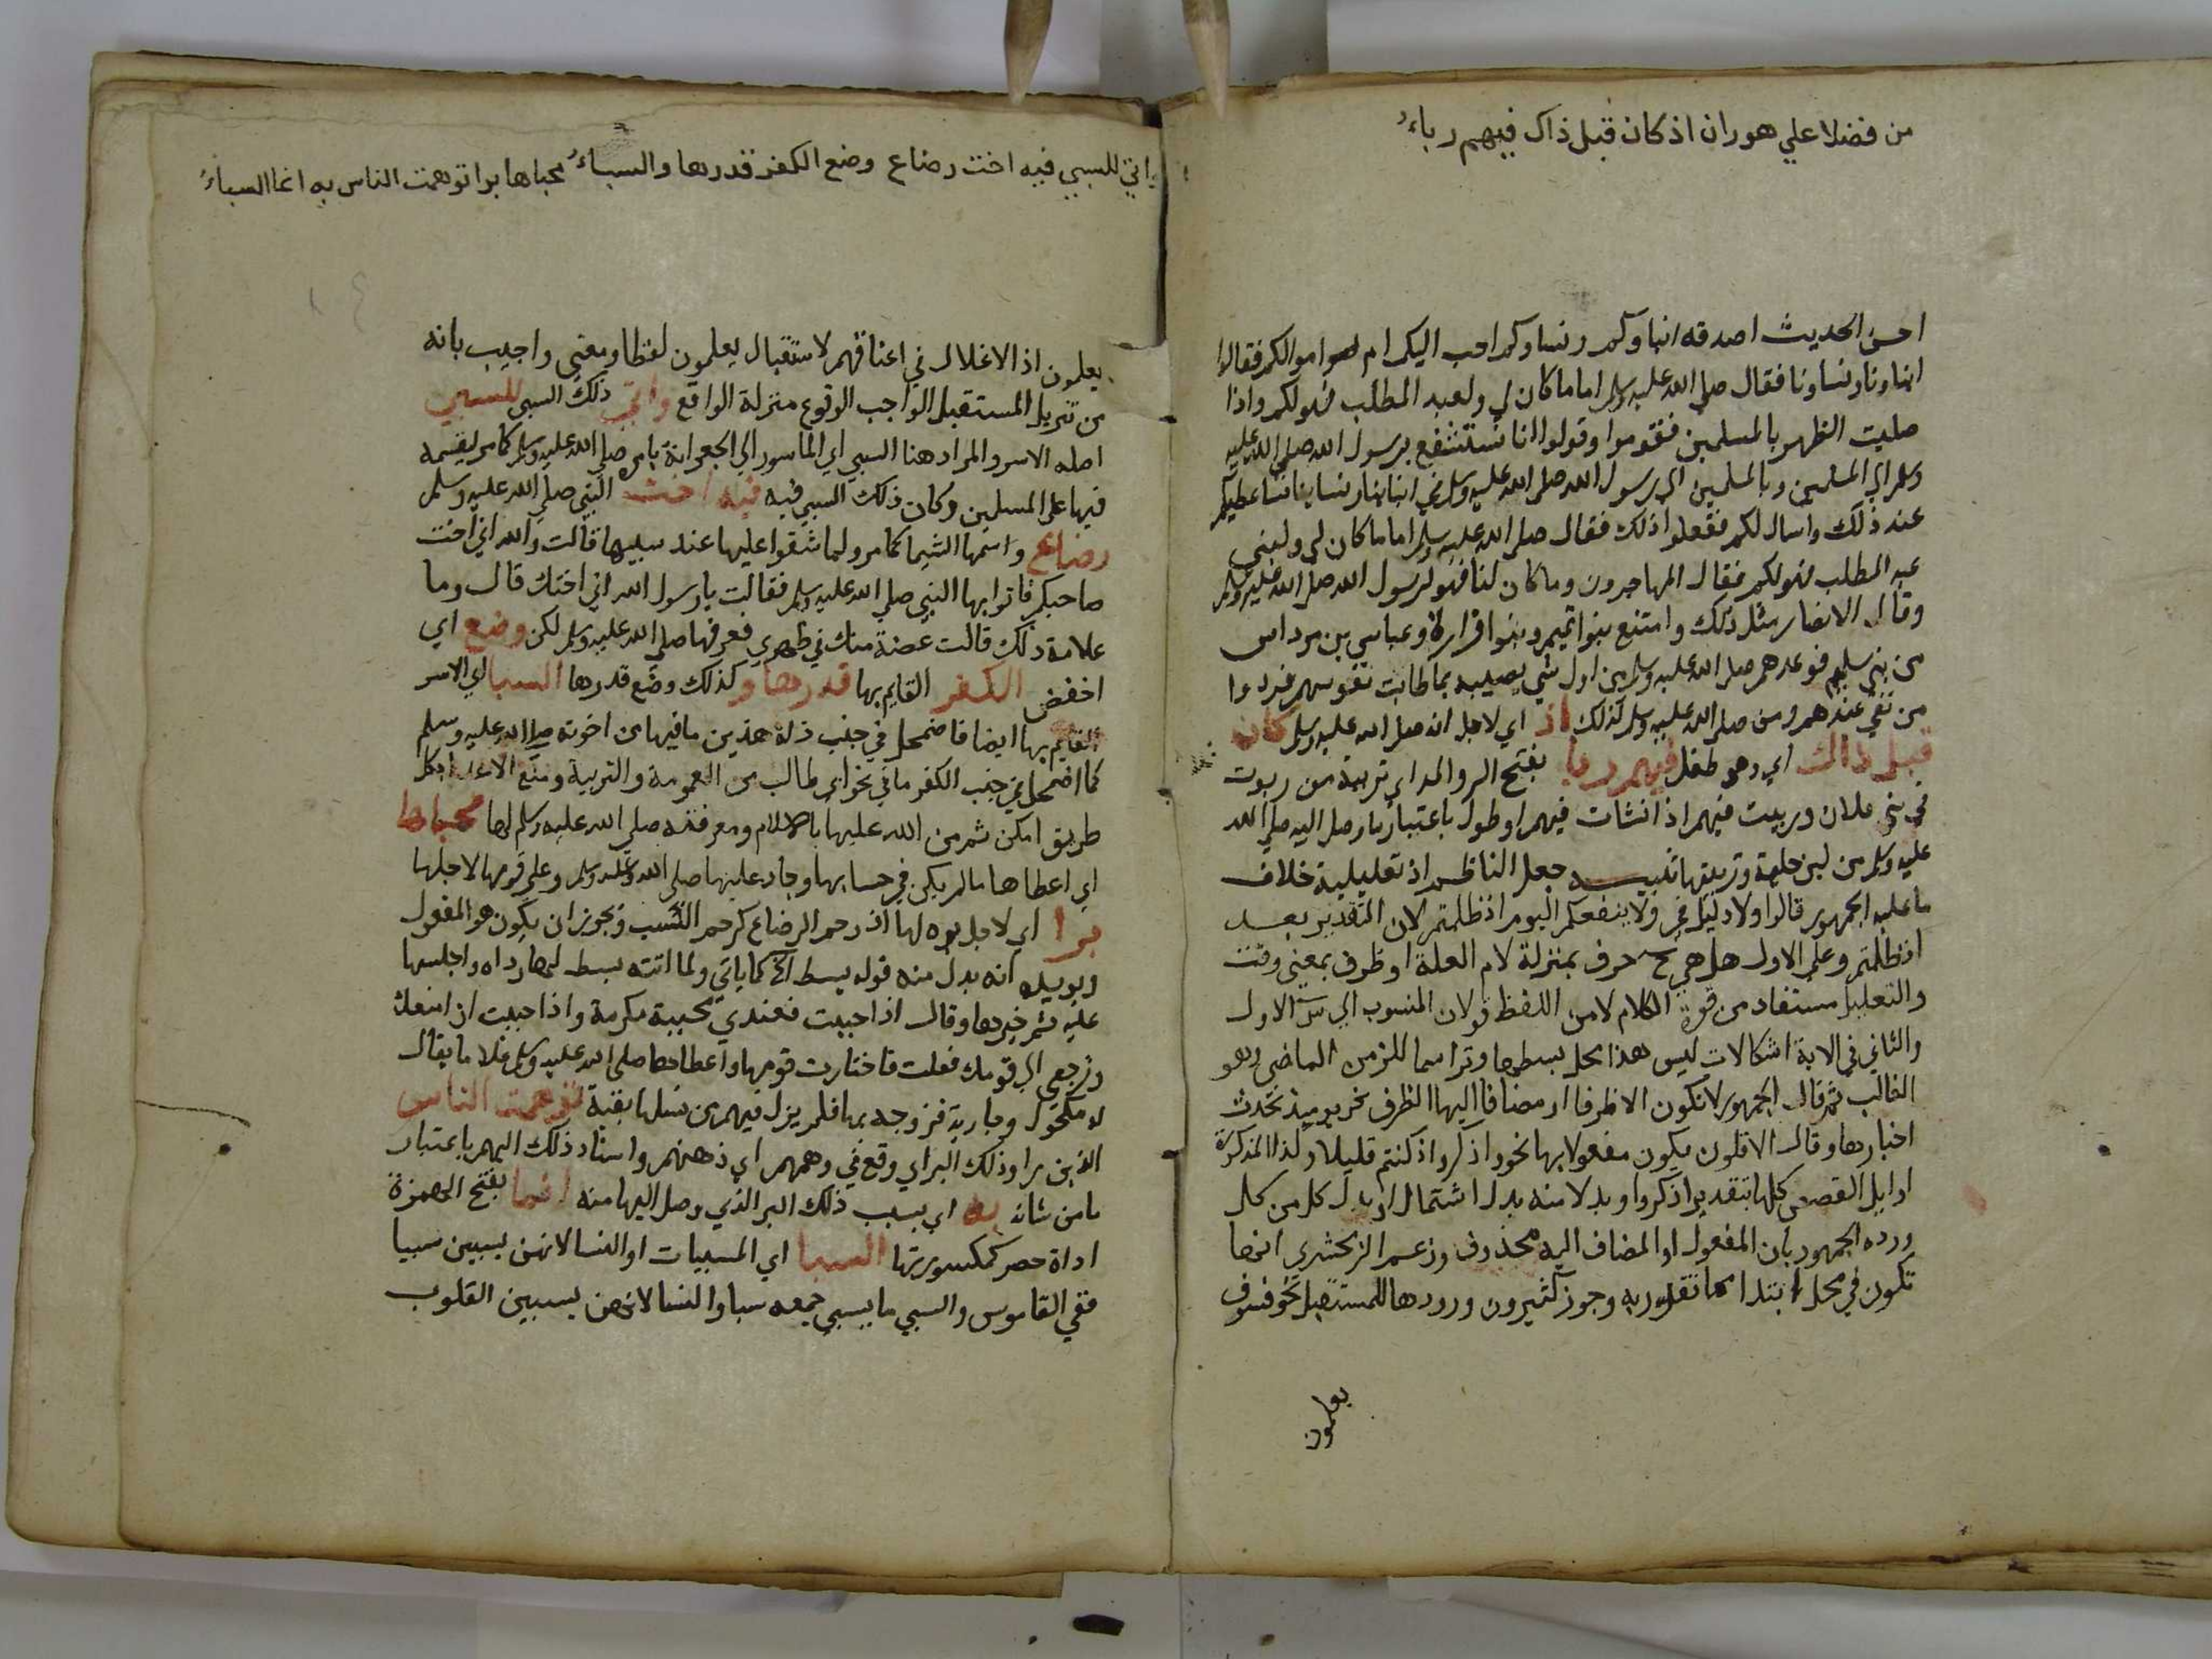 من فضلا علي هوران اذ كان قبل ذاك فيهم رباء
احسن الحديث اصدقه ابناوكم ونساوكم احب اليكم ام اموالكم فقالوا
ابناونا ونساونا فقال صلي الله عليه وسلم اما ما كان لي ولعبد المطلب فهو لكم واذا
صليت الظهر بالمسلمين فقوموا وقولوا انا نستشفع برسول الله صلي الله عليه
وسلم الي المسلمين وبالمسلمين الي رسول الله صلي الله عليه وسلم في ابناينا ونساينا فساعطيكم
عند ذلك واسال لكم ففعلوا ذلك فقال صلي الله عليه وسلم اما ما كان لي ولبني
عبد المطلب فهو لكم فقال المهاجرون وما كان لنا فهو لرسول الله صلي الله عليه وسلم
وقال الانصار مثل ذلك وامتنع بنوا تميم وبنوا فزارة وعباس بن مرداس
من بني سليم فوعدهم صلي الله عليه وسلم من اول شي يصيبه بما طابت نفوسهم فردوا
من بقي عندهم ومن صلي الله عليه وسلم لذلك اذ اي لاجل انه صلي الله عليه وسلم كان
قبل ذاك اي وهو طفل فيهم ربا بفتح الرا والمد اي تربية من ربوت
في بني فلان وربيت فيهم اذا نشات فيهم او طول باعتبار ما وصل اليه صلي الله
عليه وسلم من لبن حليمة وتربيتها تنبيه جعل الناظم اذ تعليلية خلاف
ما عليه الجمهور قالوا ولا دليل في ولا ينفعكم اليوم اذ ظلمتم لان التقدير بعد
اذ ظلمتم وعلي الاول هل هي ح حرف بمنزلة لام العلة او ظرف بمعني وقت
والتعليل مستفاد من قوة الكلام لا من اللفظ قولان المنسوب الي س الاول
والثاني في الاية اشكالات ليس هذا محل بسطها وترد اسما للزمن الماضي وهو
الغالب ثم قال الجمهور لا تكون الا ظرفا او مضافا اليها الظرف نحو يوميذ تحدث
اخبارها وقال الاقلون يكون مفعولا بها نحو واذكروا اذ كنتم قليلا وكذا المذكورة
اوايل القصص كلها بتقدير اذكروا وبدلا منه بدل اشتمال او بدل كل من كل
ورده الجمهور بان المفعول او المضاف اليه محذوف وزعم الزمخشري انها
تكون في محل ابتدا وجوز كثيرون ورودها للمستقبل نحو فسوف
يعلمون
واتي للسبي فيه اخت رضاع وضع الكفر قدرها والسباء محباها برا توهمت الناس به انما السباء
يعلمون اذ الاغلال في اعناقهم لاستقبال يعلمون لفظا ومعني واجيب بانه
من تنزيل المستقبل الواجب الوقوع منزلة الواقع واتي ذلك السبي للسبي
اصله الاسر والمراد هنا السبي اي الماسور الي الجعرانة بامره صلي الله عليه وسلم كما مر ليقسمه
فيها علي المسلمين وكان ذلك السبي فيه فيه اخت النبي صلي الله عليه وسلم
رضاع واسمها الشيما كما مر ولما شقوا عليها عند سبيها قالت والله اني اخت
صاحبكم فاتوا بها النبي صلي الله عليه وسلم فقالت يا رسول الله اني اختك قال وما
علامة ذلك قالت عضة منك في ظهري فعرفها صلي الله عليه وسلم لكن وضع اي
اخفض الكفر القايم بها قدرها و كذلك وضع قدرها السبا اي الاسر
القايم بها ايضا فاضمحل في جنب ذلة هذين ما فيها من اخوته صلي الله عليه وسلم
كما اضمحل في جنب الكفر ما في نحو ابي طالب من العمومة والتربية ومنع الاعدا بكل
طريق امكن ثم من الله عليها بالاسلام ومعرفته صلي الله عليه وسلم لها محباها
اي اعطاها ما لم يكن في حسابها وجاد عليها صلي الله عليه وسلم وعلي قومها لاجلها
برا اي لاجل بره لها اذ رحم الرضاع كرحم النسب ويجوز ان يكون هو المفعول
ويويده انه بدل منه قوله بسط الخ كما ياتي ولما اتته بسط لها رداه واجلسها
عليه ثم خيرها وقال اذا حببت فعندي محببة مكرمة واذا حببت ان امتعك
وترجعي الي قومك فعلت فاختارت قومها واعطاها صلي الله عليه وسلم غلاما يقال
له مكحول وجارية فزوجه بها فلم يزل فيهم من نسلها بقية توهمت الناس
الذين راوا ذلك البر اي وقع في وهمهم اي ذهنهم واسناد ذلك اليهم باعتبار
ما من شانه به اي بسبب ذلك البر الذي وصل اليها منه انما بفتح الهمزة
اداة حصر كمكسورتها السبا اي المسبيات او النسا لانهن يسبين سبيا
ففي القاموس والسبي ما يسبي جمعه سبا والنسا لانهن يسبين القلوب